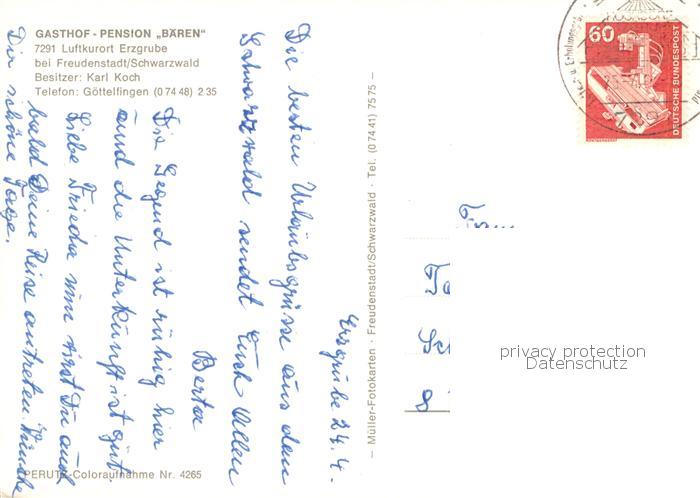 GASTHOF - PENSION „BÄREN"
7291 Luftkurort Erzgrube
bei Freudenstadt/Schwarzwald
Besitzer: Karl Koch
Telefon: Göttelfingen (0 74 48) 2 35
Erzgrube 24.4.
Die besten Urlaubsgrüsse aus dem
Schwarzwald sendet Euch Allen
Berta
Die Gegend ist ruhig hier
und die Unterkunft ist gut.
Liebe Frieda nun wirst Du auch
bald Deine Reise antreten. Wünsche
Dir schöne Tage.
PERUTZ-Coloraufnahme Nr. 4265
– Müller-Fotokarten · Freudenstadt/Schwarzwald · Tel. (0 74 41) 75 75 –
60
DEUTSCHE BUNDESPOST
8
privacy protection
Datenschutz